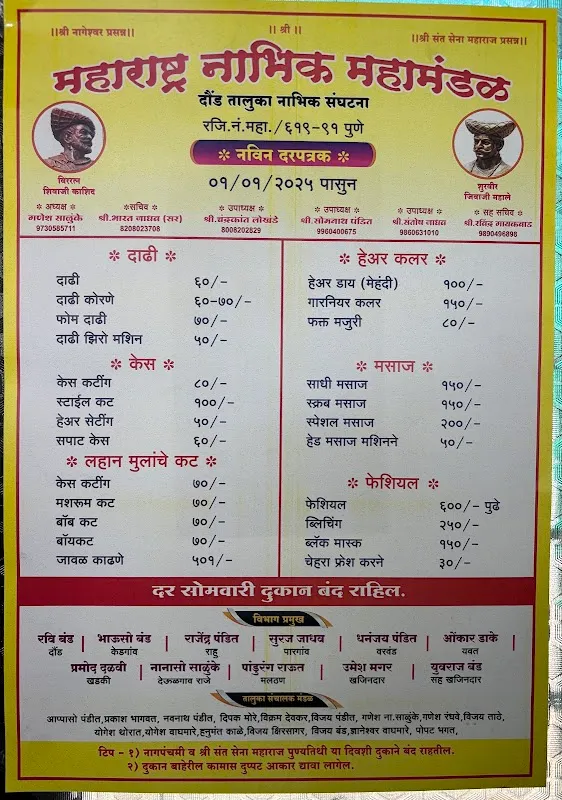 ||श्री नागेश्वर प्रसन्न||
|| श्री ||
||श्री संत सेना महाराज प्रसन्न||
महाराष्ट्र नाभिक महामंडळ
दौंड तालुका नाभिक संघटना
रजि.नं.महा./६१९-९१ पुणे
नविन दरपत्रक
०१/०१/२०२५ पासुन
बिररत्न
शिवाजी काशिद
शुरवीर
जिवाजी महाले
अध्यक्ष
गणेश साळुंके
9730585711
सचिव
श्री.भारत जाधव (सर)
8208023708
उपाध्यक्ष
श्री.चंद्रकांत लोखंडे
8008202829
उपाध्यक्ष
श्री.सोमनाथ पंडित
9960400675
उपाध्यक्ष
श्री.संतोष जाधव
9860631010
सह सचिव
श्री.रविंद्र गायकवाड
9890496898
दाढी
दाढी ६०/-
दाढी कोरणे ६०-७०/-
फोम दाढी ७०/-
दाढी झिरो मशिन ५०/-
केस
केस कटींग ८०/-
स्टाईल कट १००/-
हेअर सेटींग ५०/-
सपाट केस ६०/-
लहान मुलांचे कट
केस कटींग ७०/-
मशरूम कट ७०/-
बॉब कट ७०/-
बॉयकट ७०/-
जावळ काढणे ५०१/-
हेअर कलर
हेअर डाय (मेहंदी) १००/-
गारनियर कलर १५०/-
फक्त मजुरी ८०/-
मसाज
साधी मसाज १५०/-
स्क्रब मसाज १५०/-
स्पेशल मसाज २००/-
हेड मसाज मशिनने ५०/-
फेशियल
फेशियल ६००/- पुढे
ब्लिचिंग २५०/-
ब्लॅक मास्क १५०/-
चेहरा फ्रेश करने ३०/-
दर सोमवारी दुकान बंद राहिल.
विभाग प्रमुख
रवि बंड
दौंड
भाऊसो बंड
केडगांव
राजेंद्र पंडित
राहु
सुरज जाधव
पारगांव
धनंजय पंडित
वरवंड
ओंकार डाके
यवत
प्रमोद दळवी
खडकी
नानासो साळुंके
देऊळगाव राजे
पांडुरंग राऊत
मलठण
उमेश मगर
खजिनदार
युवराज बंड
सह खजिनदार
तालुका संचालक मंडळ
आप्पासो पंडीत,प्रकाश भागवत, नवनाथ पंडीत, दिपक मोरे,विक्रम देवकर,विजय पंडीत, गणेश ना.साळुंके,गणेश रंधवे,विजय ताठे,
योगेश थोरात,योगेश वाघमारे,हनुमंत काळे,विजय क्षिरसागर, विजय बंड,ज्ञानेश्वर वाघमारे, पोपट भगत,
टिप - १) नागपंचमी व श्री संत सेना महाराज पुण्यतिथी या दिवशी दुकाने बंद राहतील.
२) दुकान बाहेरील कामास दुप्पट आकार द्यावा लागेल.